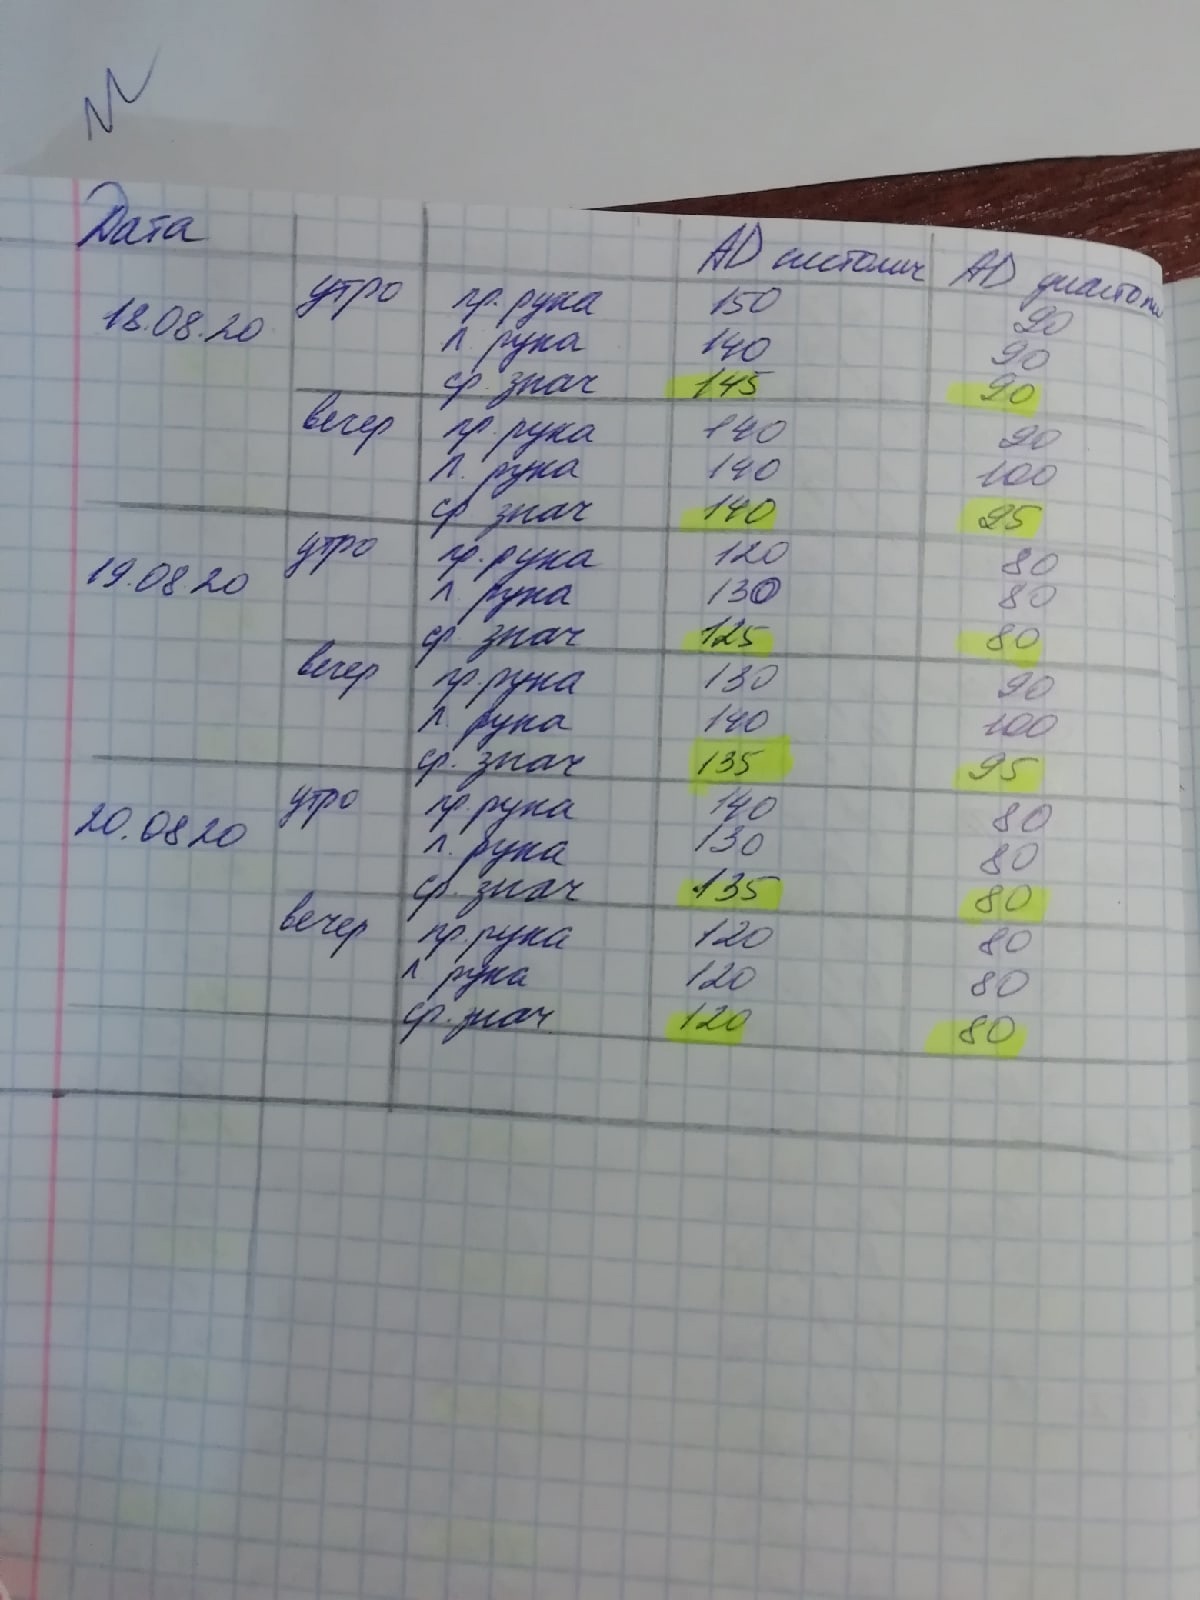 Дата АД систолич АД диастолич
18.08.20 утро пр. рука 150 90
л. рука 140 90
ср. знач 145 90
вечер пр. рука 140 90
л. рука 140 100
ср знач 140 95
19.08.20 утро пр. рука 120 80
л. рука 130 80
ср. знач 125 80
вечер пр. рука 130 90
л. рука 140 100
ср. знач 135 95
20.08 20 утро пр. рука 140 80
л. рука 130 80
ср. знач 135 80
вечер пр. рука 120 80
л рука 120 80
ср. знач 120 80